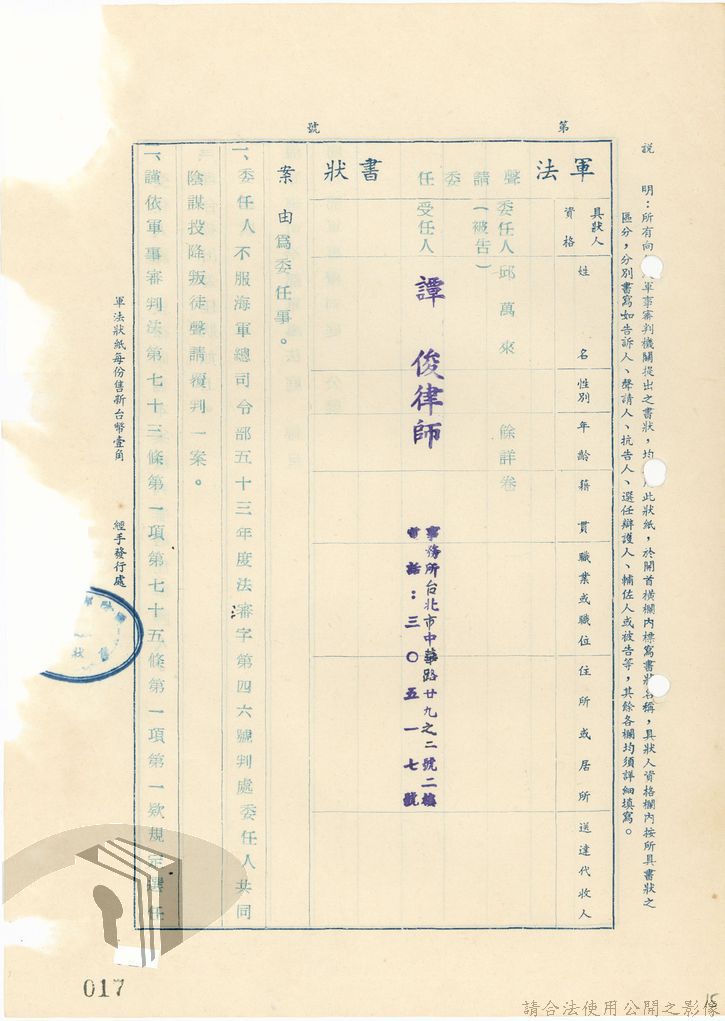 第 號
說 明：所有向 軍事審判機關提出之書狀，均 此狀紙，於開首橫欄內標寫書狀名稱，具狀人資格欄內按所具書狀之
區分，分別書寫如告訴人、聲請人、抗告人、選任辯護人、輔佐人或被告等，其餘各欄均須詳細填寫。
軍法 聲請委任 書狀
具狀人資格
姓 名
性別
年齡
籍貫
職業或職位
住所或居所
送達代收人
委任人 邱萬來 餘詳卷
（被告）
受任人 譚 俊律師
事務所台北市中華路廿九之二號二樓
電話：三〇五一七號
案 由為委任事。
一、委任人不服海軍總司令部五十三年度法審字第四六號判處委任人共同
陰謀投降叛徒聲請覆判一案。
一、謹依軍事審判法第七十三條第一項第七十五條第一項第一款規定選任
軍法狀紙每份售新台幣壹角 經手發行處
017
15
請合法使用公開之影像